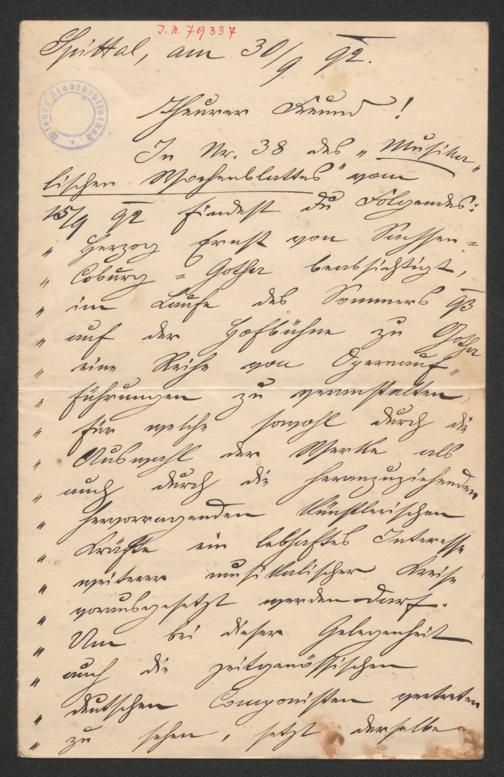 J.N. 79337
Spittal, am 30/9 92.
Wiener Stadtbibliothek
Theurer Freund!
In Nr. 38 des „Musika„
lischen Wochenblattes" vom
15/9 92 findest du Folgendes:
„ Herzog Ernst von Sachsen=
„ Coburg=Gotha beabsichtigt,
„ im Laufe des Sommers 93
„ auf der Hofbühne zu Gotha
„ eine Reihe von Opernauf„
„ führungen zu veranstalten,
„ für welche sowohl durch die
„ Auswahl der Werke als
„ auch durch die heranzuziehenden
„ hervorragenden künstlerischen
„ Kräfte ein lebhaftes Interesse
„ weiterer musikalischer Kreise
„ vorausgesetzt werden darf.
„ Um bei dieser Gelegenheit
„ auch die zeitgenössischen
„ deutschen Componisten vertreten
„ zu sehen, setzt derselbe